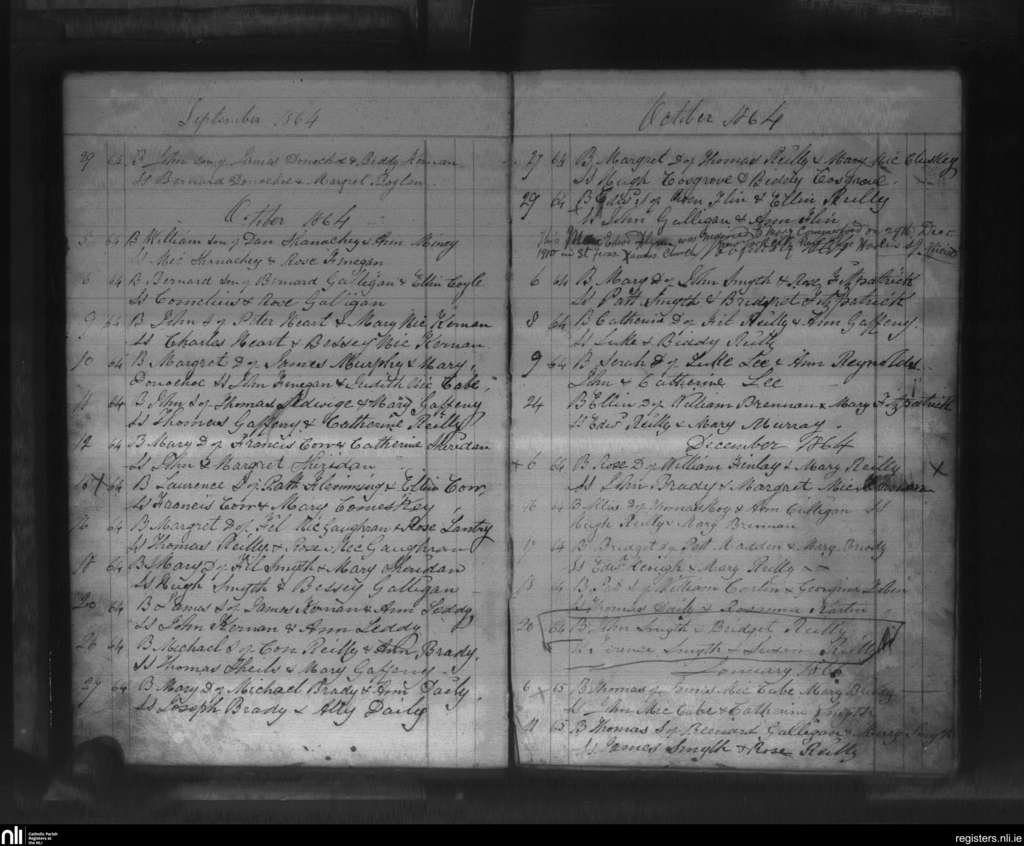 September 1864
29 64 B John son of James Donochoe & Biddy Kernan
Ss Bernard Donochoe & Margret Boylan
October 1864
5 64 B William son of Dan Shanachey & Ann
Ss Mic Sharnachey & Rose Finegan
6 64 B Bernard Son of Bernard Galligan & Ellin Coyle
Ss Cornelius & Rose Galligan
9 64 B John S of Peter Heart & Mary Mic Kernan
Ss Charles Heart & Bessey Mic Kernan
10 64 B Margret D of James Murphy & Mary
Donochoe Ss John Finegan & Judith Mic Cabe
11 64 B John S of Thomas & Mary Gaffeny
Ss Thomas Gaffeny & Catherine Reilly
12 64 B Mary D of Francis Com & Catherine Sheridan
Ss John & Margret Sheridan
15 X 64 B Laurence S of Patt Flemming & Ellin Com
Ss Francis Com & Mary Comeskey
16 64 B Margret D of Fil Mic Gaughran & Rose Lantry
Ss Thomas Reilly & Rose Mic Gaughran
18 64 B Mary D of Fil Smyth & Mary Sheridan
Ss Hugh Smyth & Bessey Galligan
20 64 B James S of James Kernan & Ann Leddy
Ss John Kernan & Ann Leddy
26 64 B Michael S of Con Reilly & Ann Brady
Ss Thomas Sheils & Mary Gaffeny
27 64 B Mary D of Michael Brady & Ann Daily
Ss Joseph Brady & Ally Daily
October 1864
27 64 B Margret D of Thomas Reilly & Mary Mic Cluskey
Ss Hugh Cosgrove & Biddy Cosgrove
29 64 B Edwd S of Owen Flin & Ellin Reilly
Ss John Galligan & Ann Flin
was married to Mary on 29th Decr
1910 in St Church
6 64 B Mary D of John Smyth & Rose Fitzpatrick
Ss Patt Smyth & Bridget Fitzpatrick
8 64 B Catherin D of Fil Reilly & Ann Gaffeny
Ss Luke & Biddy Reilly
9 64 B Sarah D of Luke Lee & Ann Reynolds
John & Catherine Lee
24 B Ellin D of William Brennan & Mary Fitzpatrick
Ss Edwd Reilly & Mary Murray
December 1864
+ 6 64 B Rose D of William Finlay & Mary Reilly X
Ss John Brady & Margret Mic
64 B D of Thomas & Ann Culligan Ss
Hugh Reilly & Mary Brennan
17 64 B Bridget D of Patt Madden & Mary Brady
Ss Edwd Keough & Mary Reilly
18 64 B S of William & Georgina
Ss Thomas Daily & Rosanna Martin
26 64 B John Smyth & Bridget Reilly
Smyth & Susan Reilly
January 1865
6 X 65 B Thomas of James Mic Cabe Mary Brady
Ss John Mic Cabe & Catherine Smyth
11 65 B Thomas S of Bernard Galligan & Mary Smyth
Ss James Smyth & Rose Reilly
nli Catholic Parish
Registers at
the NLI
registers.nli.ie